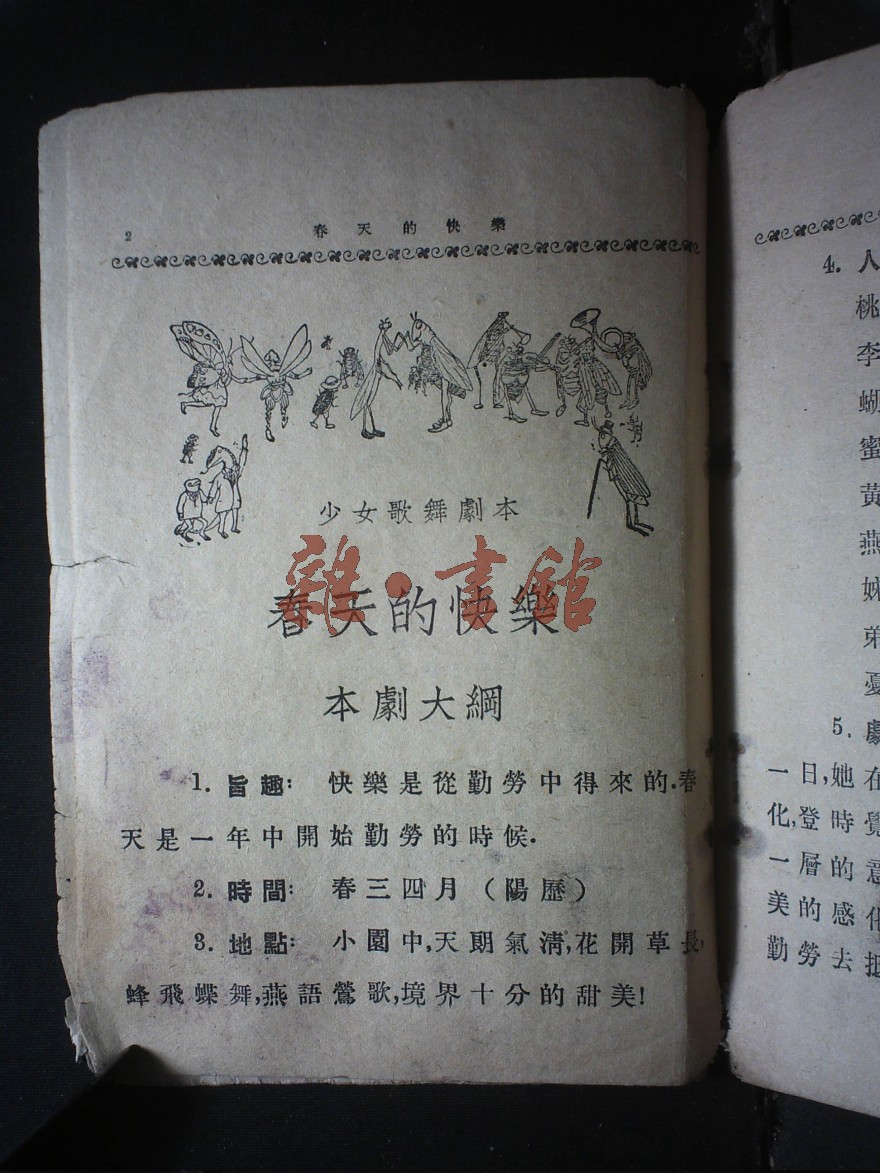 2
春天的快樂
少女歌舞劇本
春天的快樂
雜·書館
本劇大綱
1. 旨趣: 快樂是從勤勞中得來的.春
天是一年中開始勤勞的時候.
2. 時間: 春三四月（陽歷）
3. 地點: 小園中,天朗氣淸,花開草長,
蜂飛蝶舞,燕語鶯歌,境界十分的甜美!
4. 人
桃
李
蝴
蜜
黃
燕
妹
弟
憂
5. 劇
一日,她在
化,登時覺
一層的意
美的感化
勤勞去